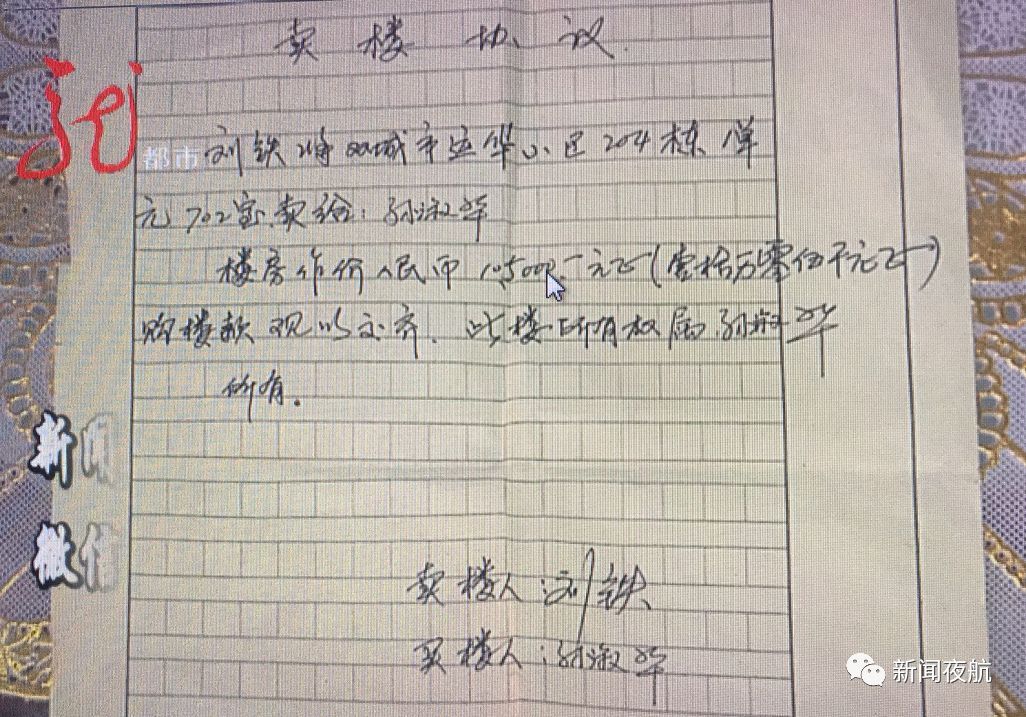 卖楼协议
都市
刘铁将双城市运华小区204栋单
元702室卖给:孙淑华
楼房作价人民币105000.-元正(壹拾万零伍千元正)
购楼款现以交齐.此楼所有权属孙淑华
所有.
新闻
微信
卖楼人:刘铁
买楼人:孙淑华
新闻夜航